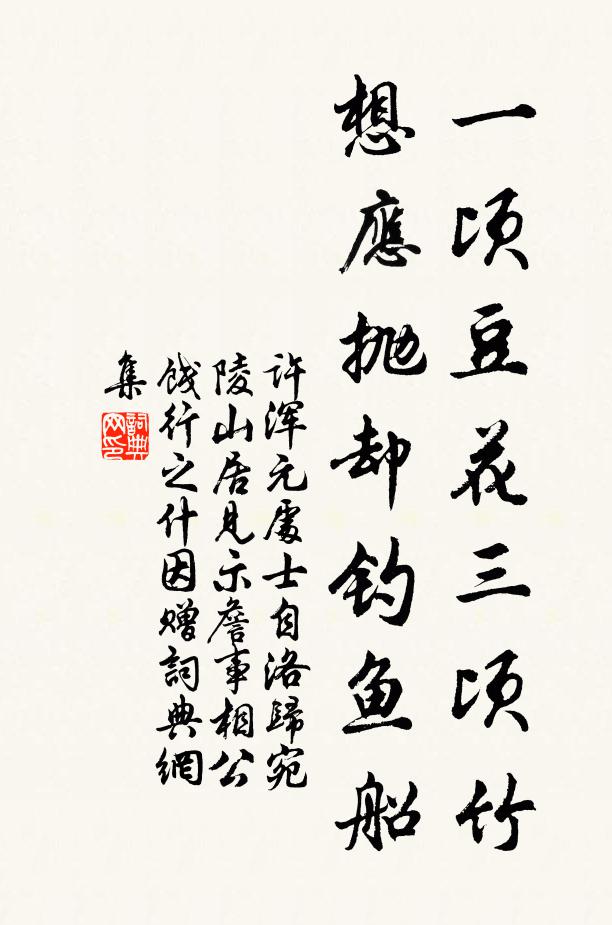 一顷豆花三顷竹
想應抛却钓鱼船
許浑元處士自洛歸宛
陵山居見示詹事相公
餞行之什因赠詞典網
集
詞典
网印